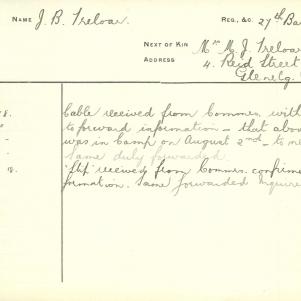 NAME J. B. Treloar. REG., &C. 27th Ba
NEXT OF KIN Mrs M. J. Treloar
ADDRESS 4. Reid Street
Glenelg.
8. Cable received from Common. with
to forward information - that abov
was in Camp on August 2nd - to ne
Same duly forwarded.
8. received from Common. confirme
formation. Same forwarded Inquire